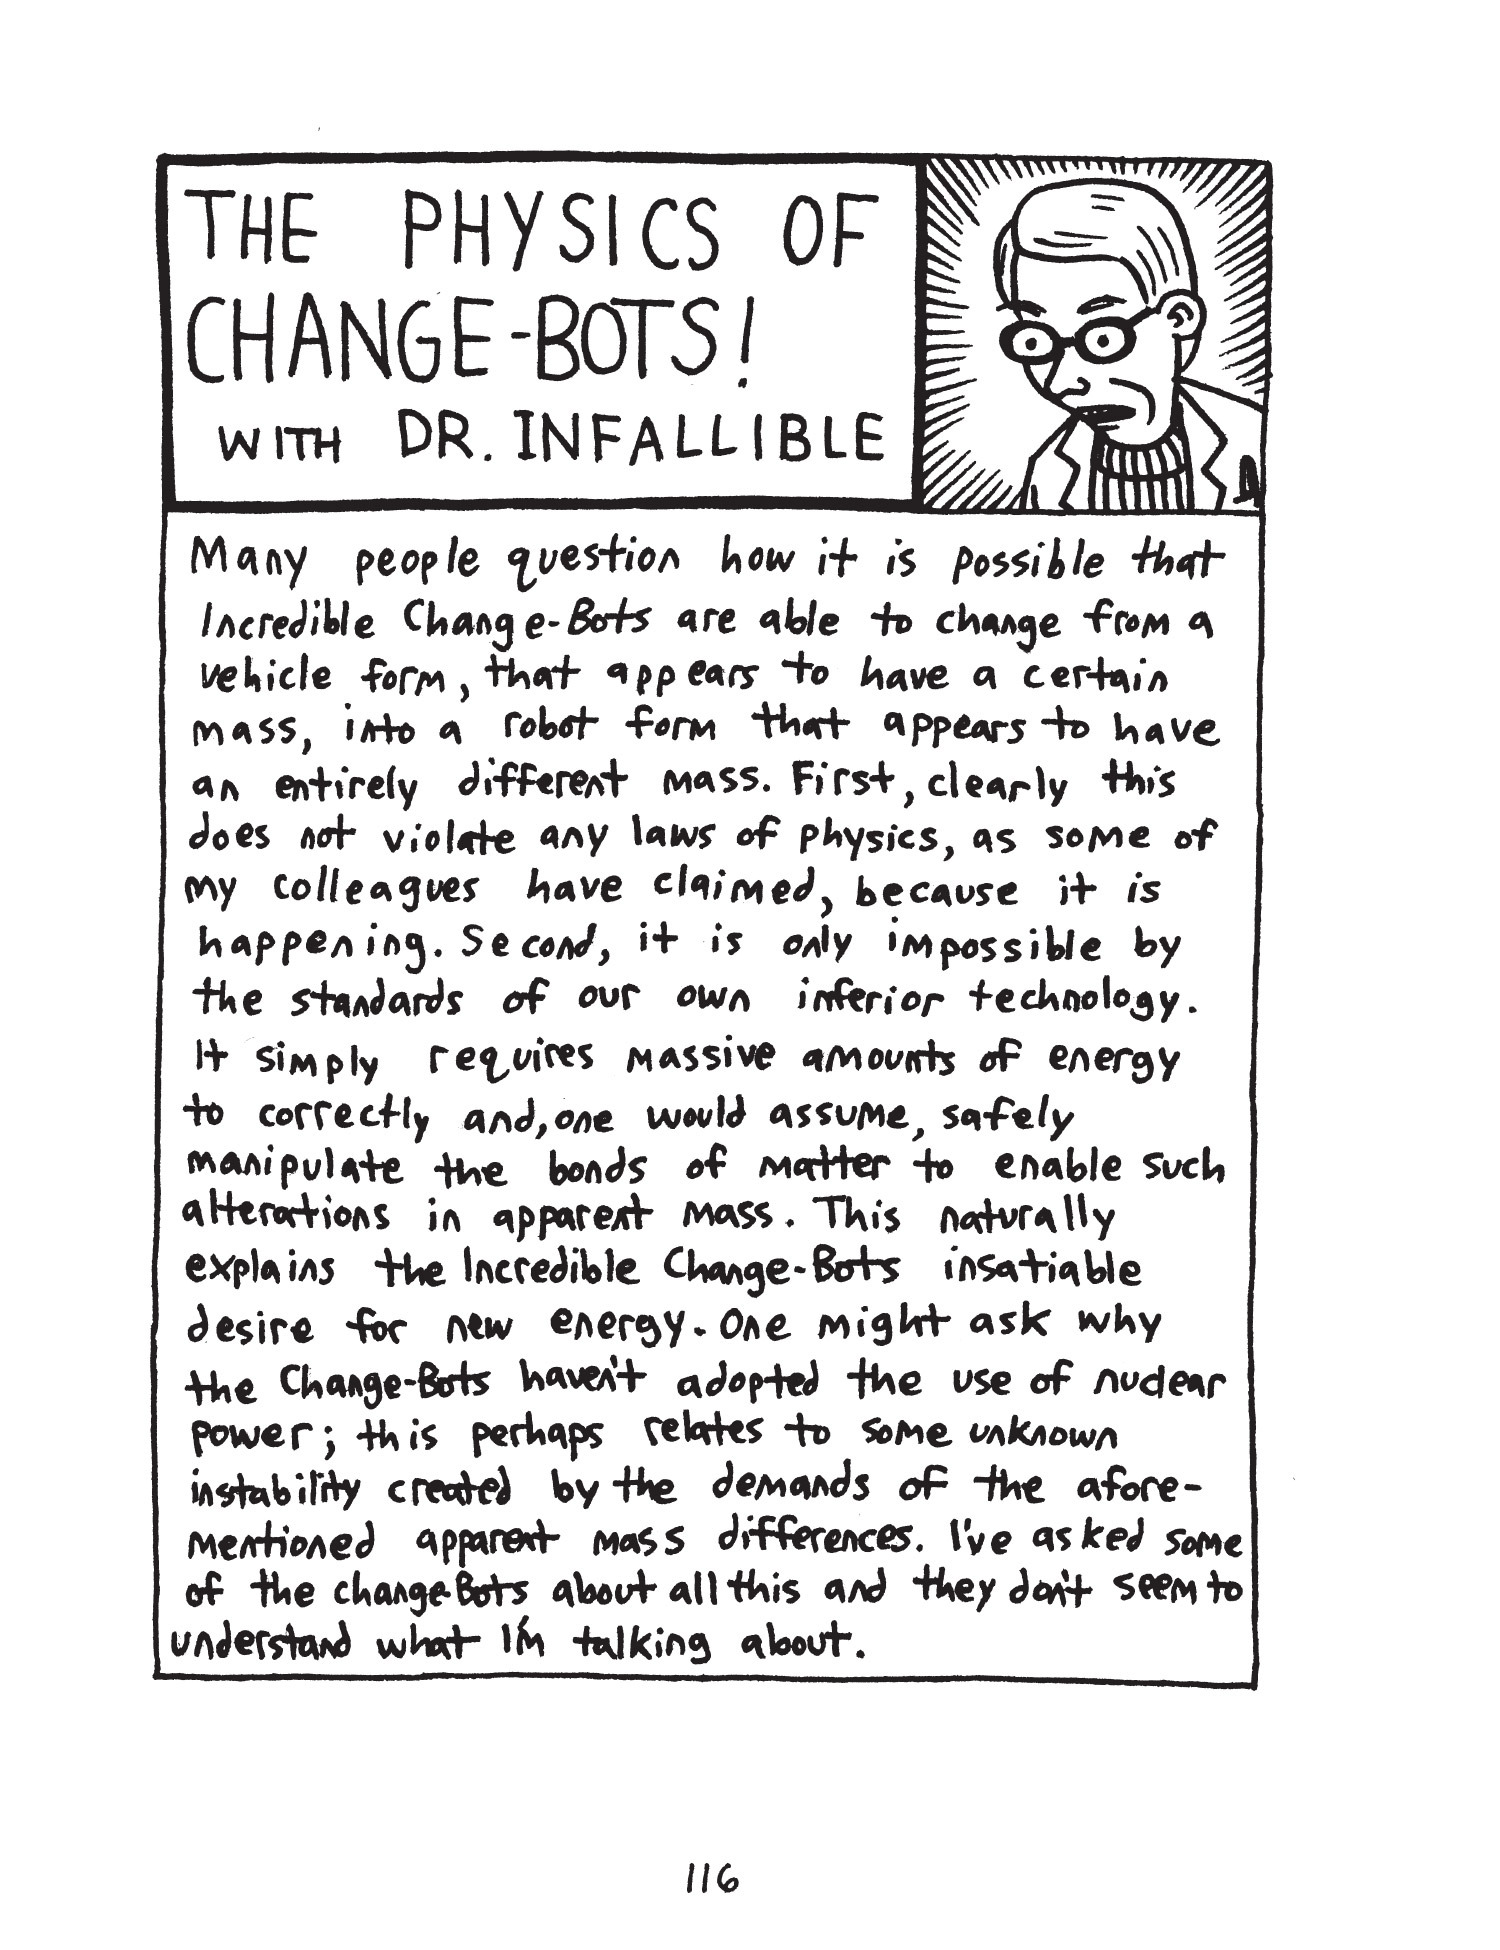 THE PHYSICS OF
CHANGE-BOTS!
WITH DR. INFALLIBLE
Many people question how it is possible that
Incredible Change-Bots are able to change from a
vehicle form, that appears to have a certain
mass, into a robot form that appears to have
an entirely different mass. First, clearly this
does not violate any laws of physics, as some of
my colleagues have claimed, because it is
happening. Second, it is only impossible by
the standards of our own inferior technology.
It simply requires massive amounts of energy
to correctly and, one would assume, safely
manipulate the bonds of matter to enable such
alterations in apparent mass. This naturally
explains the Incredible Change-Bots insatiable
desire for new energy. One might ask why
the Change-Bots haven't adopted the use of nuclear
power; this perhaps relates to some unknown
instability created by the demands of the afore-
mentioned apparent mass differences. I've asked some
of the change-Bots about all this and they don't seem to
understand what I'm talking about.
116